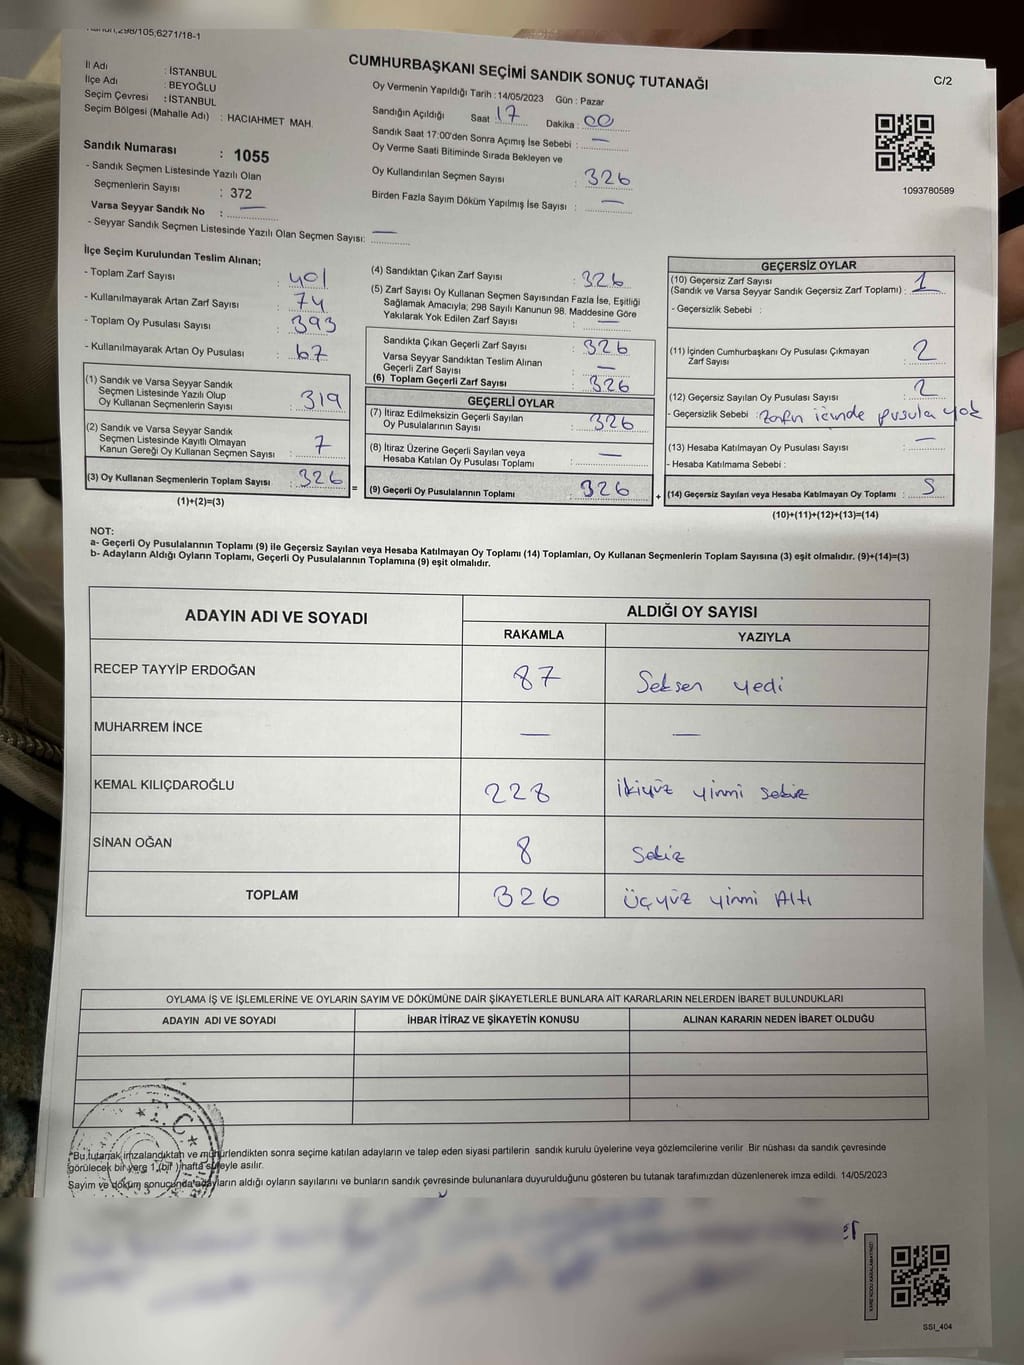 Kanun,298/105,6271/18-1
CUMHURBAŞKANI SEÇİMİ SANDIK SONUÇ TUTANAĞI
C/2
İl Adı : İSTANBUL
İlçe Adı : BEYOĞLU
Seçim Çevresi : İSTANBUL
Seçim Bölgesi (Mahalle Adı) : HACIAHMET MAH.
Sandık Numarası : 1055
- Sandık Seçmen Listesinde Yazılı Olan
Seçmenlerin Sayısı : 372
Varsa Seyyar Sandık No : —
- Seyyar Sandık Seçmen Listesinde Yazılı Olan Seçmen Sayısı: —
Oy Vermenin Yapıldığı Tarih : 14/05/2023 Gün : Pazar
Sandığın Açıldığı Saat 17 Dakika : 00
Sandık Saat 17:00'den Sonra Açımış İse Sebebi : —
Oy Verme Saati Bitiminde Sırada Bekleyen ve
Oy Kullandırılan Seçmen Sayısı : 326
Birden Fazla Sayım Döküm Yapılmış İse Sayısı : —
1093780589
İlçe Seçim Kurulundan Teslim Alınan;
- Toplam Zarf Sayısı : 401
- Kullanılmayarak Artan Zarf Sayısı : 74
- Toplam Oy Pusulası Sayısı : 393
- Kullanılmayarak Artan Oy Pusulası : 67
(1) Sandık ve Varsa Seyyar Sandık
Seçmen Listesinde Yazılı Olup
Oy Kullanan Seçmenlerin Sayısı : 319
(2) Sandık ve Varsa Seyyar Sandık
Seçmen Listesinde Kayıtlı Olmayan
Kanun Gereği Oy Kullanan Seçmen Sayısı : 7
(3) Oy Kullanan Seçmenlerin Toplam Sayısı : 326
(1)+(2)=(3)
=
(4) Sandıktan Çıkan Zarf Sayısı : 326
(5) Zarf Sayısı Oy Kullanan Seçmen Sayısından Fazla İse, Eşitliği
Sağlamak Amacıyla; 298 Sayılı Kanunun 98. Maddesine Göre
Yakılarak Yok Edilen Zarf Sayısı : —
Sandıkta Çıkan Geçerli Zarf Sayısı : 326
Varsa Seyyar Sandıktan Teslim Alınan
Geçerli Zarf Sayısı : —
(6) Toplam Geçerli Zarf Sayısı : 326
GEÇERLİ OYLAR
(7) İtiraz Edilmeksizin Geçerli Sayılan
Oy Pusulalarının Sayısı : 326
(8) İtiraz Üzerine Geçerli Sayılan veya
Hesaba Katılan Oy Pusulası Toplamı : —
(9) Geçerli Oy Pusulalarının Toplamı : 326
+
GEÇERSİZ OYLAR
(10) Geçersiz Zarf Sayısı
(Sandık ve Varsa Seyyar Sandık Geçersiz Zarf Toplamı) : 1
- Geçersizlik Sebebi :
(11) İçinden Cumhurbaşkanı Oy Pusulası Çıkmayan
Zarf Sayısı : 2
(12) Geçersiz Sayılan Oy Pusulası Sayısı : 2
- Geçersizlik Sebebi : Zarfın içinde pusula yok
(13) Hesaba Katılmayan Oy Pusulası Sayısı : —
- Hesaba Katılmama Sebebi :
(14) Geçersiz Sayılan veya Hesaba Katılmayan Oy Toplamı : 5
(10)+(11)+(12)+(13)=(14)
NOT:
a- Geçerli Oy Pusulalarının Toplamı (9) ile Geçersiz Sayılan veya Hesaba Katılmayan Oy Toplamı (14) Toplamları, Oy Kullanan Seçmenlerin Toplam Sayısına (3) eşit olmalıdır. (9)+(14)=(3)
b- Adayların Aldığı Oyların Toplamı, Geçerli Oy Pusulalarının Toplamına (9) eşit olmalıdır.
ADAYIN ADI VE SOYADI
ALDIĞI OY SAYISI
RAKAMLA YAZIYLA
RECEP TAYYİP ERDOĞAN 87 Seksen yedi
MUHARREM İNCE — —
KEMAL KILIÇDAROĞLU 228 İkiyüz yirmi sekiz
SİNAN OĞAN 8 Sekiz
TOPLAM 326 Üçyüz yirmi Altı
OYLAMA İŞ VE İŞLEMLERİNE VE OYLARIN SAYIM VE DÖKÜMÜNE DAİR ŞİKAYETLERLE BUNLARA AİT KARARLARIN NELERDEN İBARET BULUNDUKLARI
ADAYIN ADI VE SOYADI İHBAR İTİRAZ VE ŞİKAYETİN KONUSU ALINAN KARARIN NEDEN İBARET OLDUĞU
T.C
"Bu tutanak imzalandıktan ve mühürlendikten sonra seçime katılan adayların ve talep eden siyasi partilerin sandık kurulu üyelerine veya gözlemcilerine verilir. Bir nüshası da sandık çevresinde
görülecek bir yere 1 (bir) hafta süreyle asılır.
Sayım ve döküm sonucunda adayların aldığı oyların sayılarını ve bunların sandık çevresinde bulunanlara duyurulduğunu gösteren bu tutanak tarafımızdan düzenlenerek imza edildi. 14/05/2023
KARE KODU KARALAMAYINIZ!
SSI_404